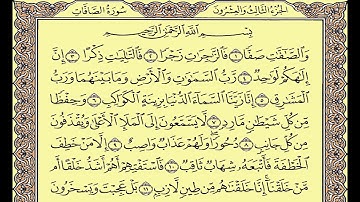 الجزء الثالث والعشرون سورة الصافات
بِسْمِ اللَّهِ الرَّحْمَٰنِ الرَّحِيمِ
وَالصَّافَّاتِ صَفًّا ١ فَالزَّاجِرَاتِ زَجْرًا ٢ فَالتَّالِيَاتِ ذِكْرًا ٣ إِنَّ
إِلَٰهَكُمْ لَوَاحِدٌ ٤ رَبُّ السَّمَاوَاتِ وَالْأَرْضِ وَمَا بَيْنَهُمَا وَرَبُّ
الْمَشَارِقِ ٥ إِنَّا زَيَّنَّا السَّمَاءَ الدُّنْيَا بِزِينَةٍ الْكَوَاكِبِ ٦ وَحِفْظًا
مِنْ كُلِّ شَيْطَانٍ مَارِدٍ ٧ لَا يَسَّمَّعُونَ إِلَى الْمَلَإِ الْأَعْلَىٰ وَيُقْذَفُونَ
مِنْ كُلِّ جَانِبٍ ٨ دُحُورًا وَلَهُمْ عَذَابٌ وَاصِبٌ ٩ إِلَّا مَنْ خَطِفَ
الْخَطْفَةَ فَأَتْبَعَهُ شِهَابٌ ثَاقِبٌ ١٠ فَاسْتَفْتِهِمْ أَهُمْ أَشَدُّ خَلْقًا أَمْ
مَنْ خَلَقْنَا إِنَّا خَلَقْنَاهُمْ مِنْ طِينٍ لَازِبٍ ١١ بَلْ عَجِبْتَ وَيَسْخَرُونَ